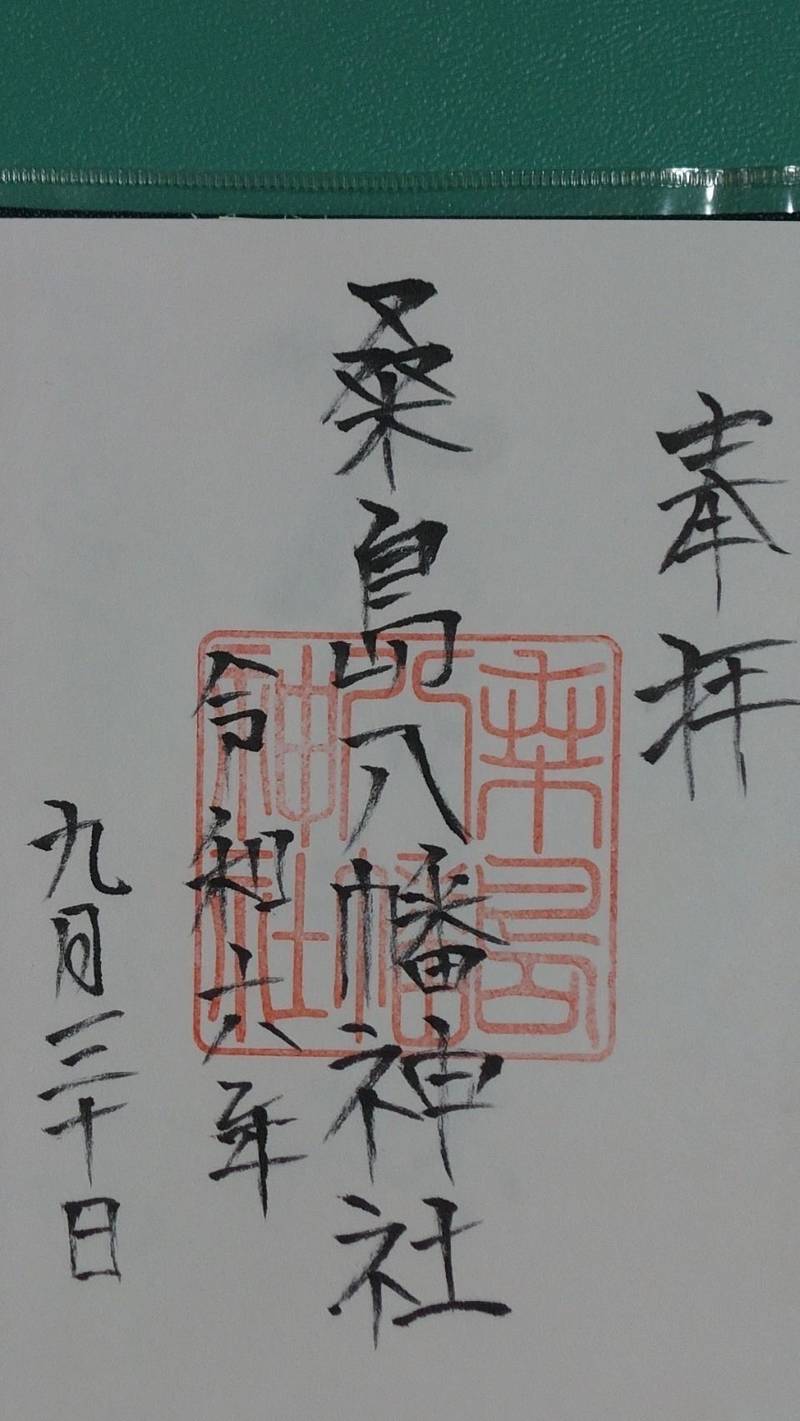 奉拝
桑島八幡神社
令和六年
九月三十日
桑島
八幡
神社